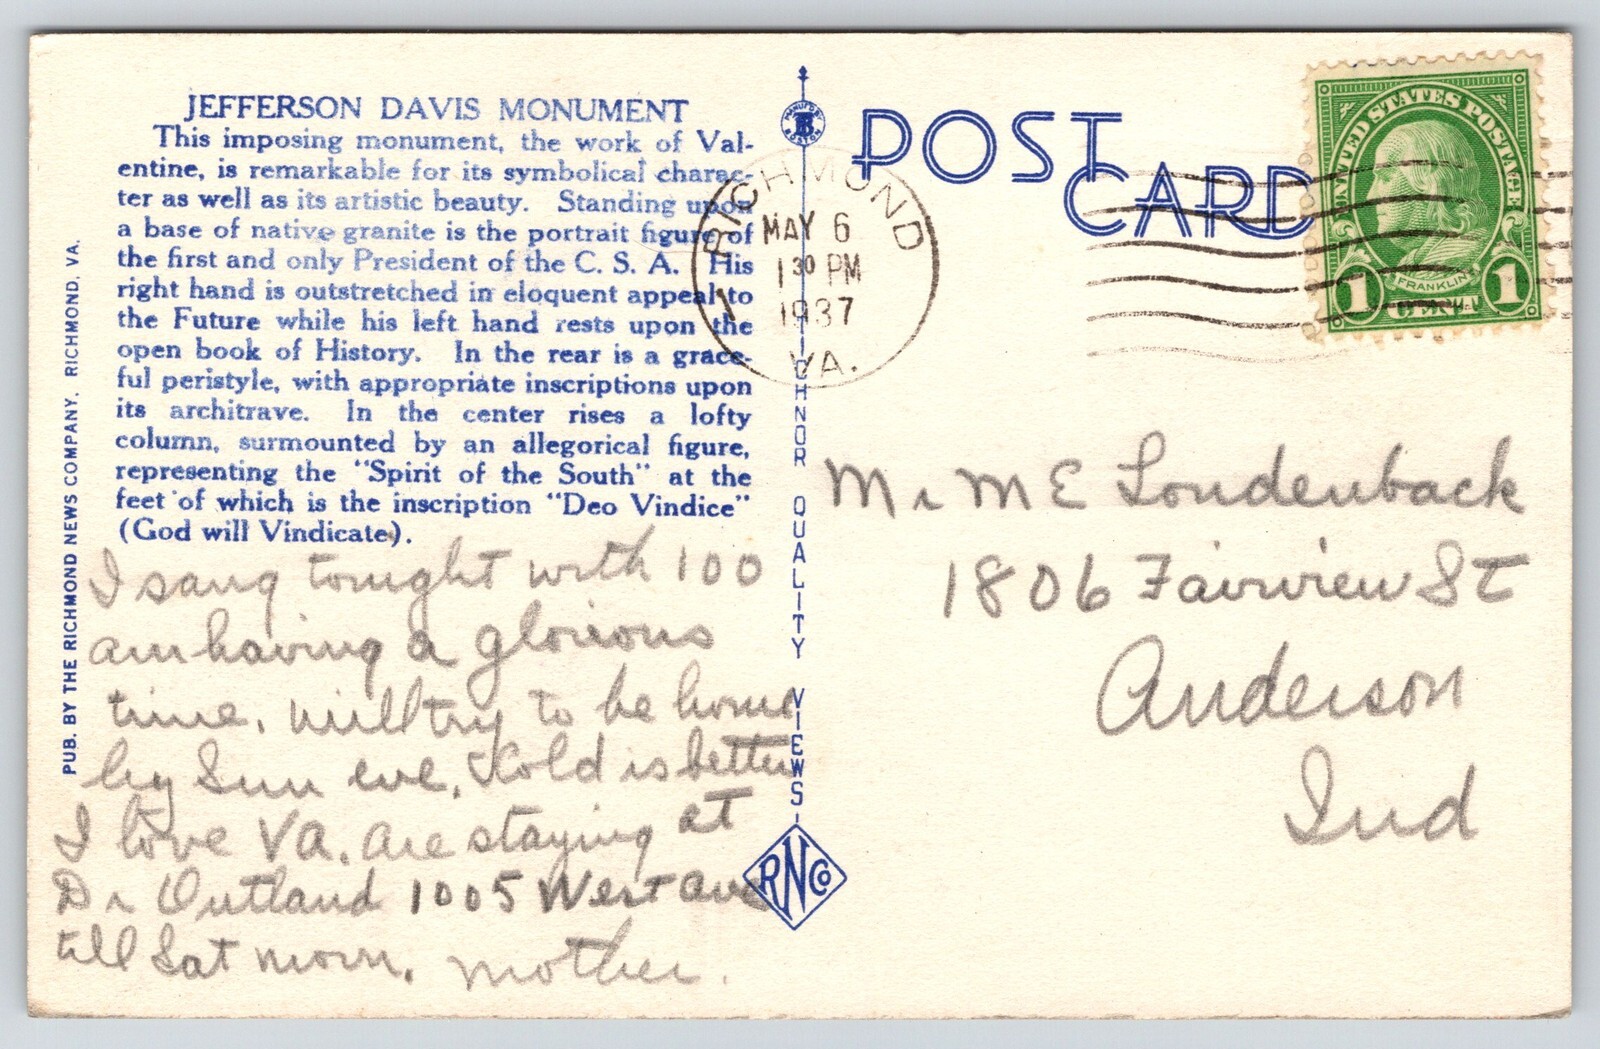 JEFFERSON DAVIS MONUMENT
This imposing monument, the work of Val-
entine, is remarkable for its symbolical charac-
ter as well as its artistic beauty. Standing upon
a base of native granite is the portrait figure of
the first and only President of the C. S. A. His
right hand is outstretched in eloquent appeal to
the Future while his left hand rests upon the
open book of History. In the rear is a grace-
ful peristyle, with appropriate inscriptions upon
its architrave. In the center rises a lofty
column, surmounted by an allegorical figure,
representing the "Spirit of the South" at the
feet of which is the inscription "Deo Vindice"
(God will Vindicate).
I sang tonight with 100
am having a glorious
time. Will try to be home
by Sun eve. Kold is better
I love VA. are staying at
Dr Outland 1005 West Ave
till Sat morn. Mother.
PUB. BY THE RICHMOND NEWS COMPANY, RICHMOND, VA.
MANUF'D BY
BOSTON
TICHNOR QUALITY VIEWS
RNCo
POST CARD
RICHMOND
MAY 6
1 30 PM
1937
1
VA.
UNITED STATES POSTAGE
FRANKLIN
1 CENT 1
Mr M E Loudenback
1806 Fairview St
Anderson
Ind